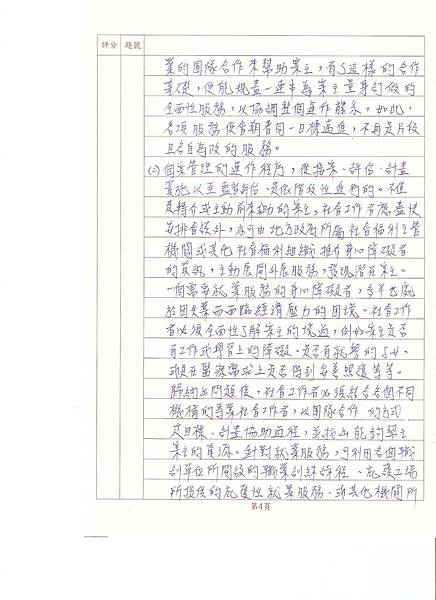 評分 題號
業的團隊合作來幫助案主,有了這樣的合作
基礎,便能規畫一連串為案主量身訂做的
全面性服務,以協調整個運作體系,如此,
各項服務便會朝者同一目標邁進,不再是片段
且各自為政的服務。
(二)個案管理的運作程序,從接案、評估、計畫
實施以至監督評估,是依階段性進行的。不僅
是轉介或主動前來求助的案主,社會工作者應盡快
安排會談外,亦可由地方政府所屬社會福利主管
機關或其他社會福利組織擁有身心障礙者
的資訊,主動展開外展服務,發現潛在案主。
一個需要就業服務的身心障礙者,多半也處
於因失業而面臨經濟壓力的困境。社會工作
者必須全面性了解案主的境遇,例如案主是否
有工作或學習上的障礙、是否有就學的
或是在醫療需求上是否得到妥善照護等等。
歸納出問題後,社會工作者必須結合各個不同
機構的專業社會工作者,以團隊合作的方式
定目標、計畫協助過程,並找出能夠幫主
案主的資源。針對就業服務,可利用各個職
訓單位所開設的職業訓練課程、庇護工場
所提供的庇護性就業服務、或其他機關所
第4頁